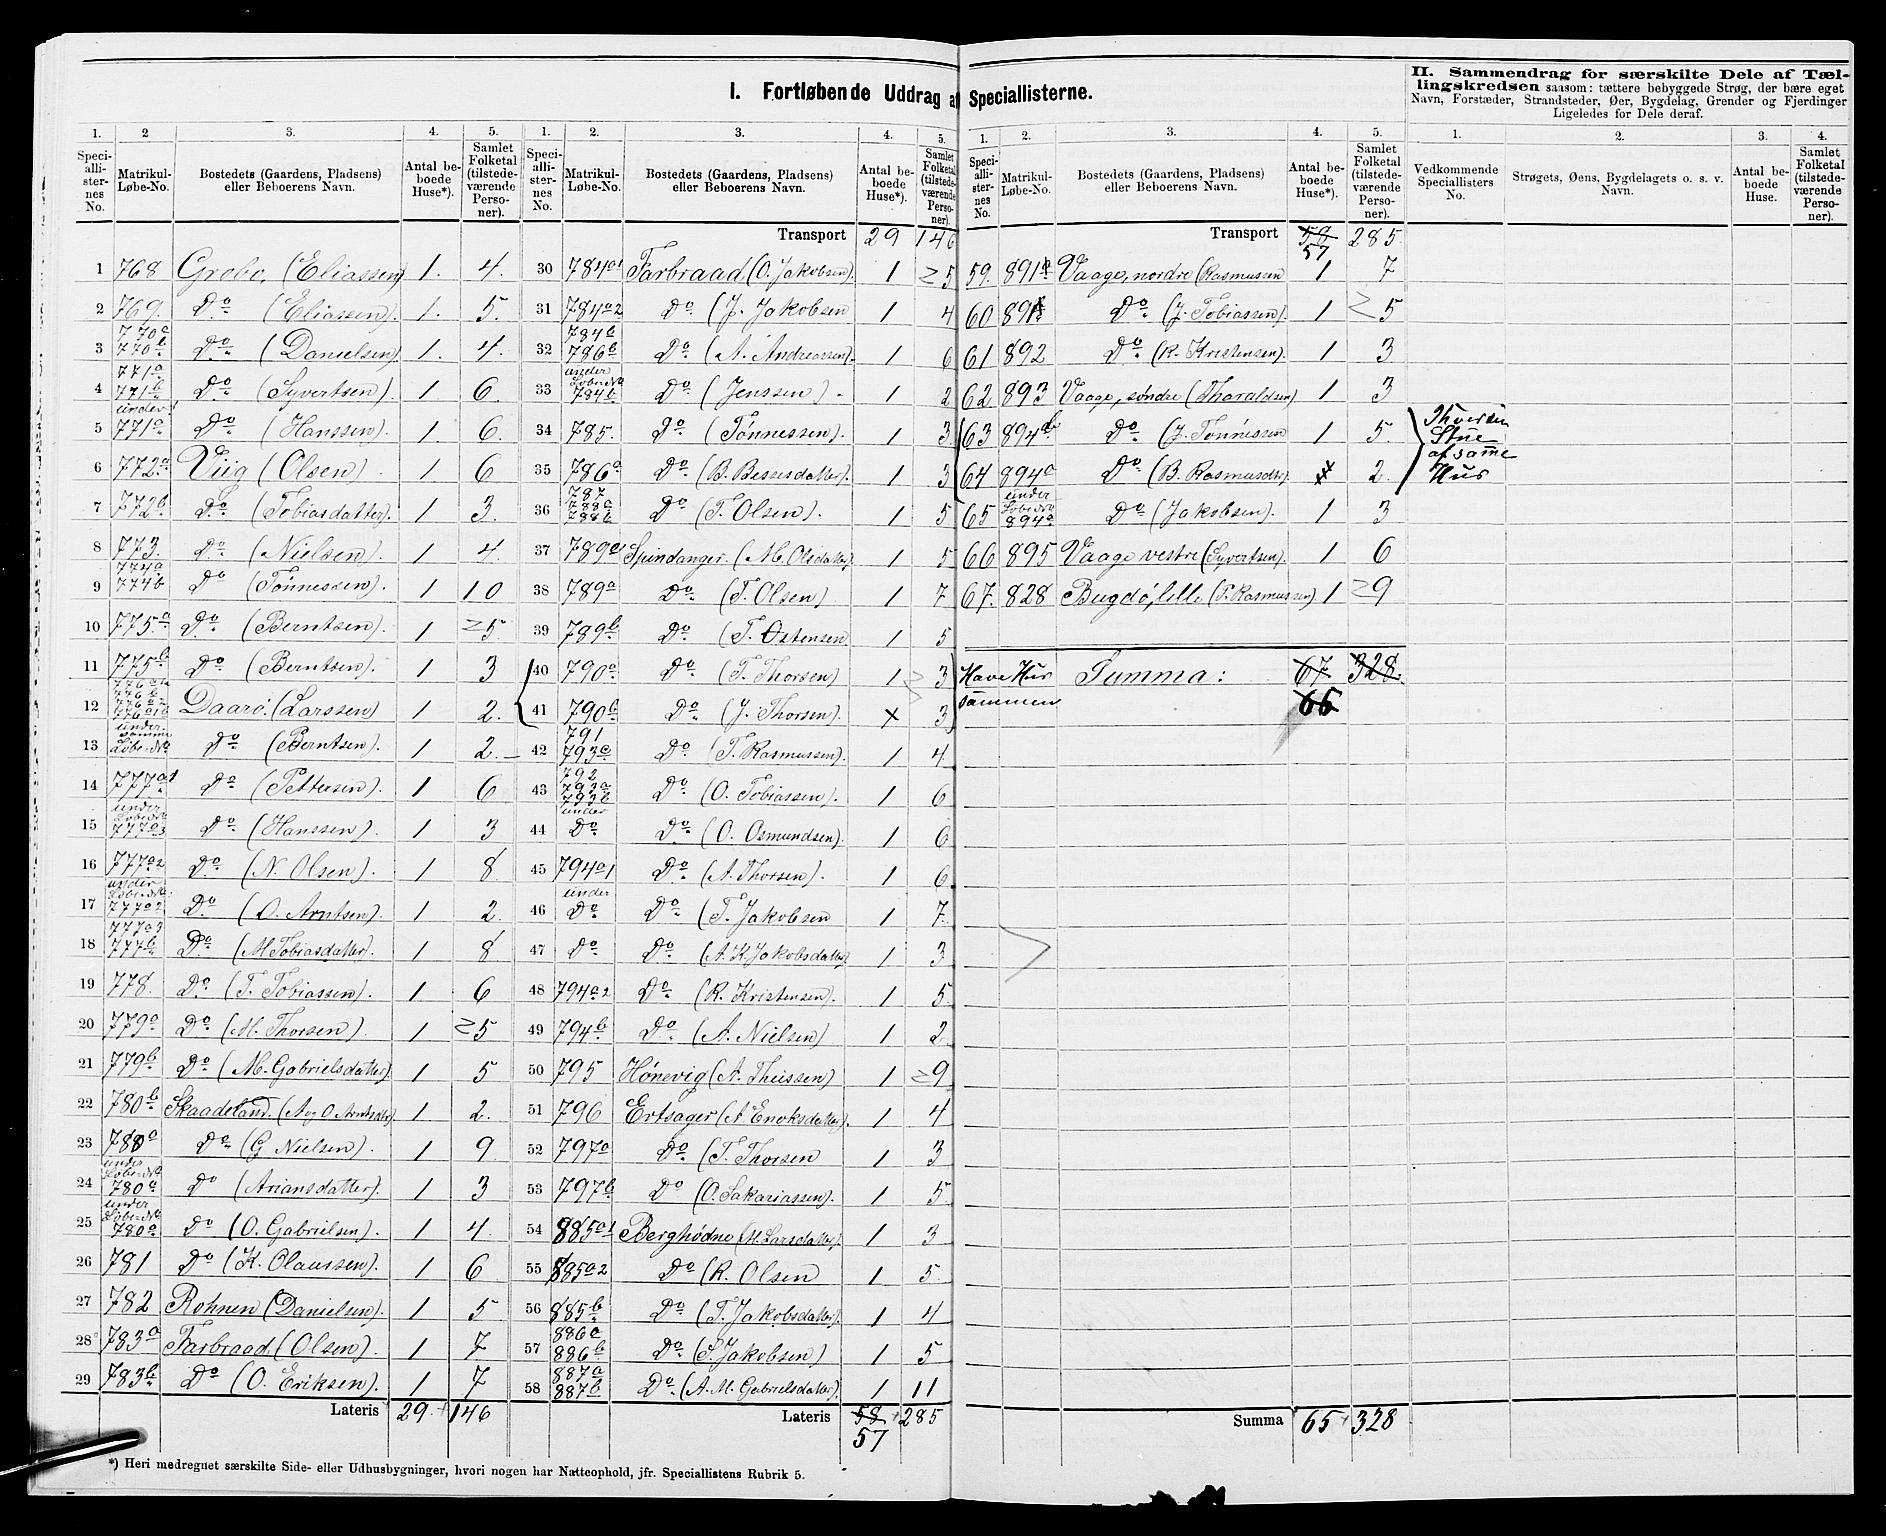 I. Fortløbende Uddrag af Speciallisterne.
II. Sammendrag for særskilte Dele af Tæl-
lingskredsen saasom: tættere bebyggede Strøg, der bære eget
Navn, Forstæder, Strandsteder, Øer, Bygdelag, Grender og Fjerdinger
Ligeledes for Dele deraf.
1. 2 3. 4. 5.
Speci-allister-nes No. Matrikul-Løbe-No. Bostedets (Gaardens, Pladsens) eller Beboerens Navn. Antal be-boede Huse*). Samlet Folketal (tilstede-værende Perso-ner).
1 768 Grebo, (Eliassen) 1. 4.
2 769. Do (Eliassen). 1. 5.
3 770a 770b Do (Danielsen). 1. 4.
4 771a 771b Do (Syvertsen) 1 6.
5 under 771a Do (Hanssen). 1. 6.
6 772a Viig (Olsen) 1. 6
7 772b Do (Tobiasdatter). 1 3.
8 773. Do (Nielsen). 1 4.
9 774a 774b Do (Tønnessen). 1 10
10 775a Do (Berntsen). 1 5
11 775b Do (Berntsen). 1 3
12 Daarø. (Larssen) 1 2.
13 under samme Løbe-No Do (Berntsen). 1 2.
14 777a1 Do (Pettersen). 1 6
15 under Løbe-No 777a3 Do (Hanssen). 1 3
16 777a2 Do (N. Olsen) 1 8
17 under Løbe-No 777a2 Do (O. Arntsen). 1 2.
18 777a3 777b Do (M Tobiasdatter). 1 8
19 778. Do (T. Tobiassen). 1 6
20 779a Do (M. Thorsen) 1 5
21 779b Do (M. Gabrielsdatter) 1 5
22 780b Skaadeland. (A og O Arntsdtr) 1 2.
23 780a Do (G Nielsen). 1 9
24 under Løbe-No 780a Do (Ariansdatter). 1 3
25 under Løbe-No 780a Do (O. Gabrielsen). 1 4.
26 781 Do (K. Olaussen). 1 6
27 782 Rohnen (Danielsen). 1 5
28 783a Farbraad (Olsen). 1 7
29 783b Do (O. Eriksen). 1 7
Lateris 29 146
1. 2. 3. 4. 5.
Speci-alli-ster-nes No. Matrikul-Løbe-No. Bostedets (Gaardens, Pladsens) eller Beboerens Navn. Antal be-boede Huse*). Samlet Folketal (tilstede-værende Perso-ner).
Transport 29 146
30 784a1 Farbraad (O. Jakobsen). 1 5
31 784a2 Do (J. Jakobsen 1 4
32 784b 786b Do (A. Andreassen). 1 6
33 under Løbe-No 784b Do (Jenssen) 1 2
34 785. Do (Tønnessen). 1 3
35 786a Do (B. Bessesdatter). 1 3
36 787 788a 788b Do (T. Olsen). 1 5
37 789a1 Spindanger. (M. Olsdatter). 1 5
38 789a Do (T. Olsen) 1 7
39 789b Do (T. Østensen 1 5
40 790a Do (T. Thorsen) 1 3
41 790b Do (J. Thorsen). x 3
42 791 793a Do (T. Rasmussen). 1 4
43 792 793a 793b Do (O. Tobiassen). 1 6
44 under Do Do (O. Osmundsen). 1 6
45 794a1 Do (A. Thorsen). 1 6
46 under Do Do (T. Jakobsen 1 7
47 Do Do (A. K. Jakobsdatter). 1 3
48 794a2 Do (R. Kristensen). 1 5
49 794b Do (A. Nielsen) 1 2
50 795 Hønevig (A. Theissen) 1 9
51 796 Ertsager (A Enoksdatter). 1 4
52 797a Do (T. Thorsen 1 3
53 797b Do (O. Sakariassen). 1 5
54 885a1 Berghødne (M. Larsdatter). 1 3
55 885a2 Do (R. Olsen 1 5
56 885b Do (T. Jakobsdatter) 1 4
57 886a 886b Do (S. Jakobsen) 1 5
58 887a 887b Do (A. M. Gabrielsdatter). 1 11
Lateris 58 285
57
1. 2. 3. 4. 5.
Speci-alli-ster-nes No. Matrikul-Løbe-No. Bostedets (Gaardens, Pladsens) eller Beboerens Navn. Antal be-boede Huse*). Samlet Folketal (tilstede-værende Perso-ner).
Transport 58 285.
57
59. 891 Vaage, nordre (Rasmussen 1 7
60 891 Do (J. Tobiassen). 1 5
61 892 Do (R. Kristensen). 1 3
62 893 Vaage, søndre (Tharaldsen) 1 3
63 894b Do (J. Tønnessen 1 5.
64 894a Do (B. Rasmusdtr). x 2.
Thver sin
Stue
af samme
Hus
65 under Løbe-No 894a Do (Jakobsen). 1 3
66 895 Vaage vestre (Syvertsen). 1 6
67. 828 Bugdø, lille (P. Rasmussen) 1 9
Have Hus
sammen
Summa: 67 328.
66
Summa 65 328
1. 2. 3. 4.
Vedkommende Speciallisters No. Strøgets, Øens, Bygdelagets o. s. v. Navn. Antal be-boede Huse. Samlet Folketal (tilstede-værende Perso-ner).
*) Heri medregnet særskilte Side- eller Udhusbygninger, hvori nogen har Natteophold, jfr. Speciallistens Rubrik 5.